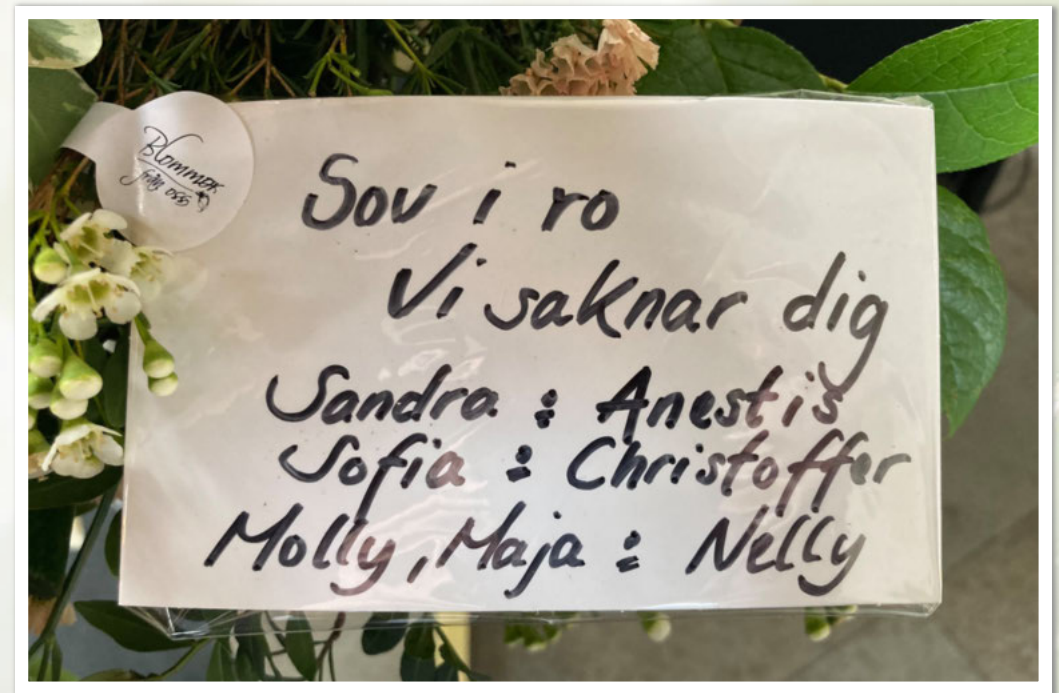 Blommor
från oss
Sov i ro
Vi saknar dig
Sandra & Anestis
Sofia & Christoffer
Molly, Maja & Nelly